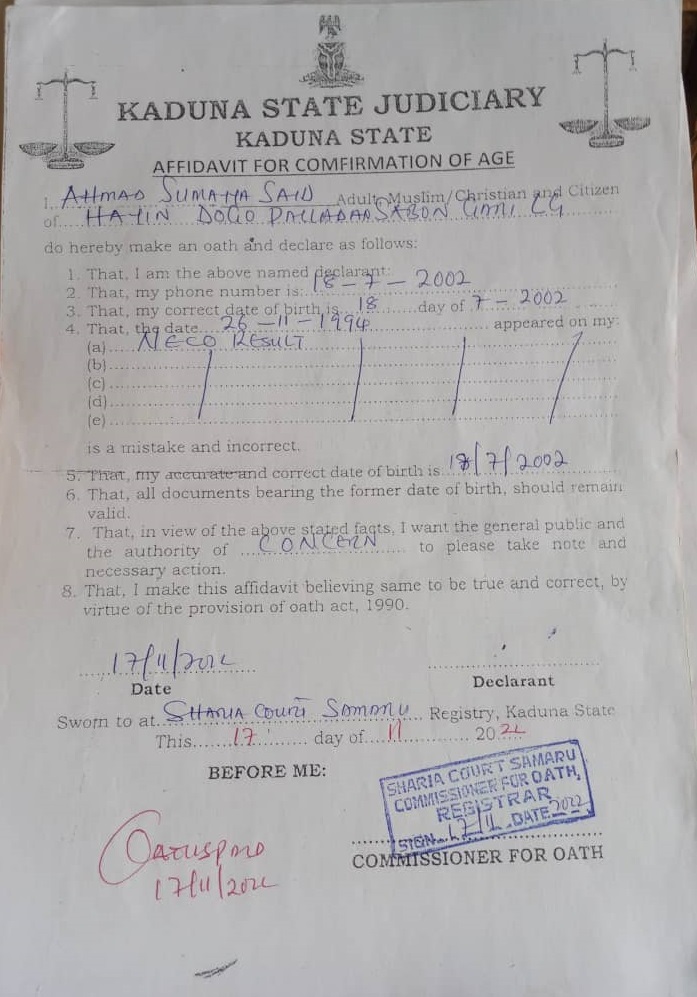 KADUNA STATE JUDICIARY
KADUNA STATE
AFFIDAVIT FOR COMFIRMATION OF AGE
I, AHMAD SUMAYYA SAID Adult, Muslim/Christian and Citizen
of HAYIN DOGO DALLADAR SABON GARI LG
do hereby make an oath and declare as follows:
1. That, I am the above named declarant:
2. That, my phone number is: 18 - 7 - 2002
3. That, my correct date of birth is 18 day of 7 - 2002
4. That, the date 26 - 11 - 1994 appeared on my:
(a) NECO RESULT
(b)
(c)
(d)
(e)
is a mistake and incorrect.
5. That, my accurate and correct date of birth is 18/7/2002
6. That, all documents bearing the former date of birth, should remain
valid.
7. That, in view of the above stated facts, I want the general public and
the authority of CONCERN to please take note and
necessary action.
8. That, I make this affidavit believing same to be true and correct, by
virtue of the provision of oath act, 1990.
17/11/2022
Date Declarant
Sworn to at SHARIA COURT Registry, Kaduna State
This 17 day of 11 2022
BEFORE ME:
SHARIA COURT SAMARU
COMMISSIONER FOR OATH,
REGISTRAR
SIGN 17/11 DATE 2022
COMMISSIONER FOR OATH
17/11/2022